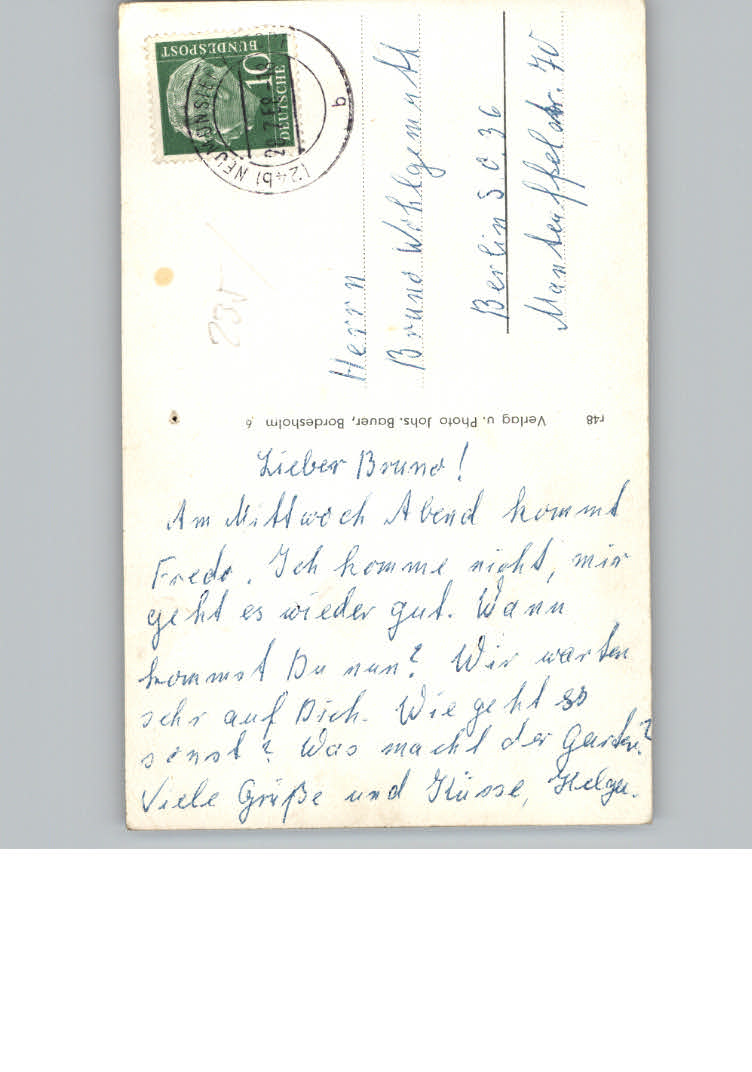 DEUTSCHE
BUNDESPOST
10
(24b) NEUMÜNSTER
b
235
Herrn
Bruno Wohlgemuth
Berlin S.O. 36
Manteuffelstr. 70
r48 Verlag u. Photo Johs. Bauer, Bordesholm 6
Lieber Bruno!
Am Mittwoch Abend kommt
Fredo. Ich komme nicht, mir
geht es wieder gut. Wann
kommst Du nun? Wir warten
sehr auf Dich. Wie geht es
sonst? Was macht der Garten?
Viele Grüße und Küsse, Helga.